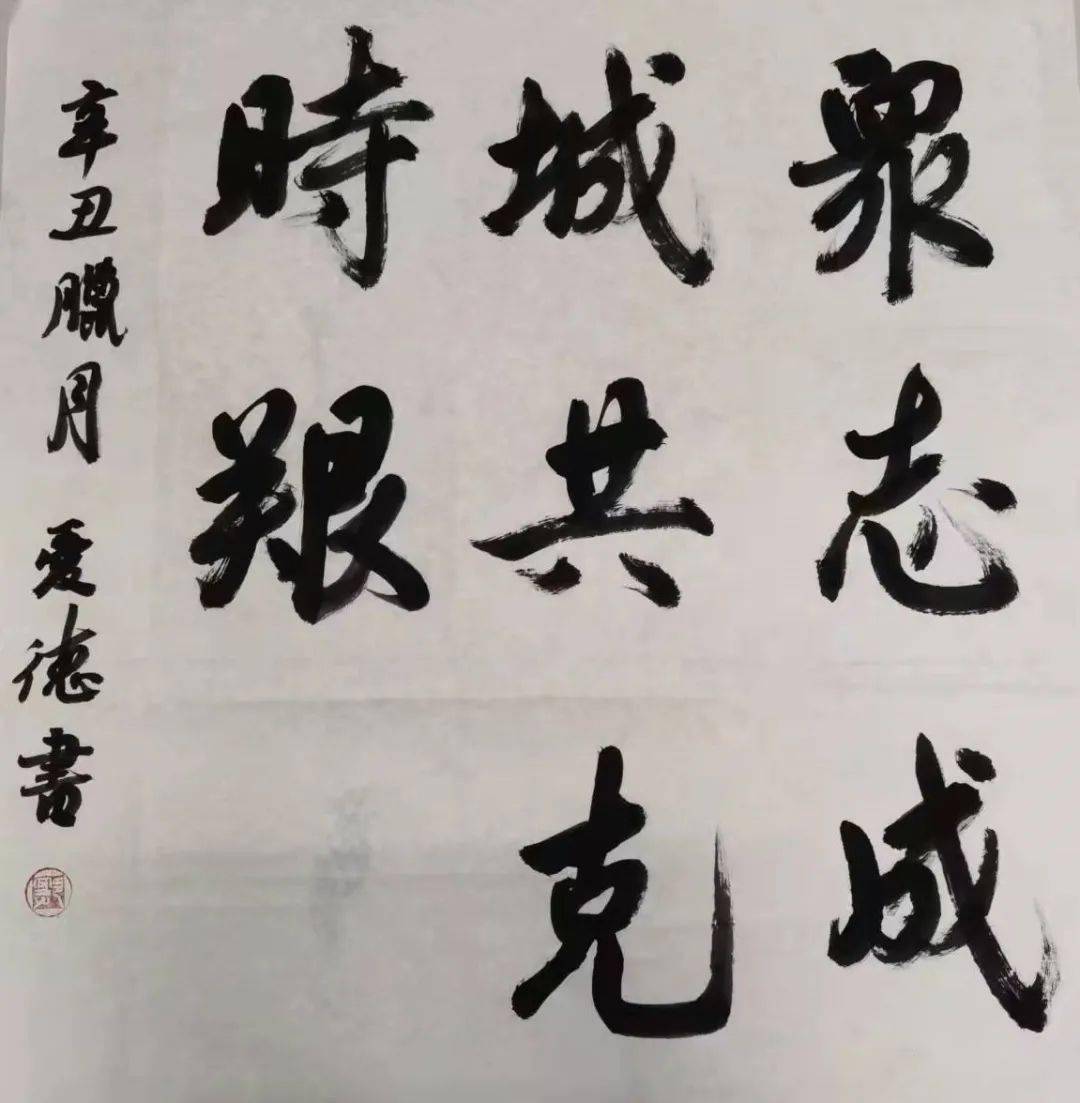 眾志成
城共克
時艱
辛丑臘月 愛德書